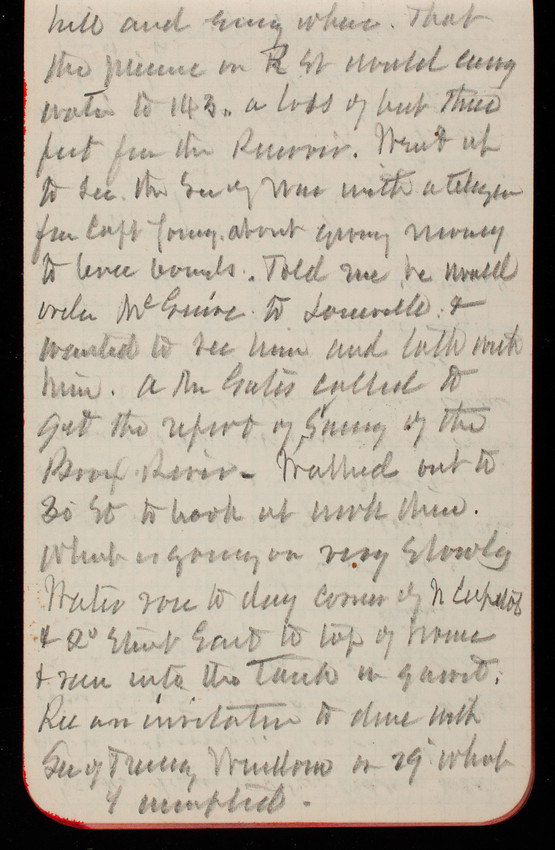 hill and every where. That
the pressure on R St would carry
water to 143. a loss of but three
feet from the Reservoir. Went up
to see the Secy War with a telegram
from Capt about giving money
to levee boards. Told me he would
order McGuire to Louisville &
wanted to see him and talk with
him. A Mr Gates called to
get the report of Survey of the
Bronx River - Walked out to
St to look at work there.
What is going on very slowly
Water rose to day corner of N Capitol
& Street East to top of house
& ran into the Tank in garret.
Rec an invitation to dine with
Secy Treasy Windom on 29 what
I accepted -